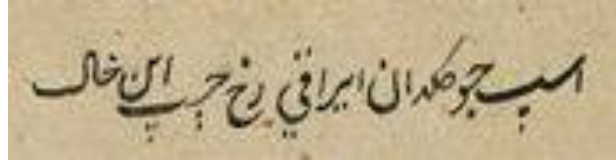 اسپ جو کلدان ایرافی رخ چپ این خال